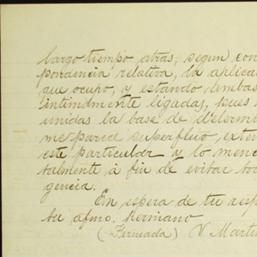 largo tiempo atras, segun con
pondencia relativa, la aplicac
que ocupo, y estando ambas
intimamente ligadas, pues
unidas la base de determin
me parece superfluo, exten
este particular y lo menc
talmente á fin de evitar
gencia.
En espera de tu resp
tu afmo. hermano
(Firmada) V Marti